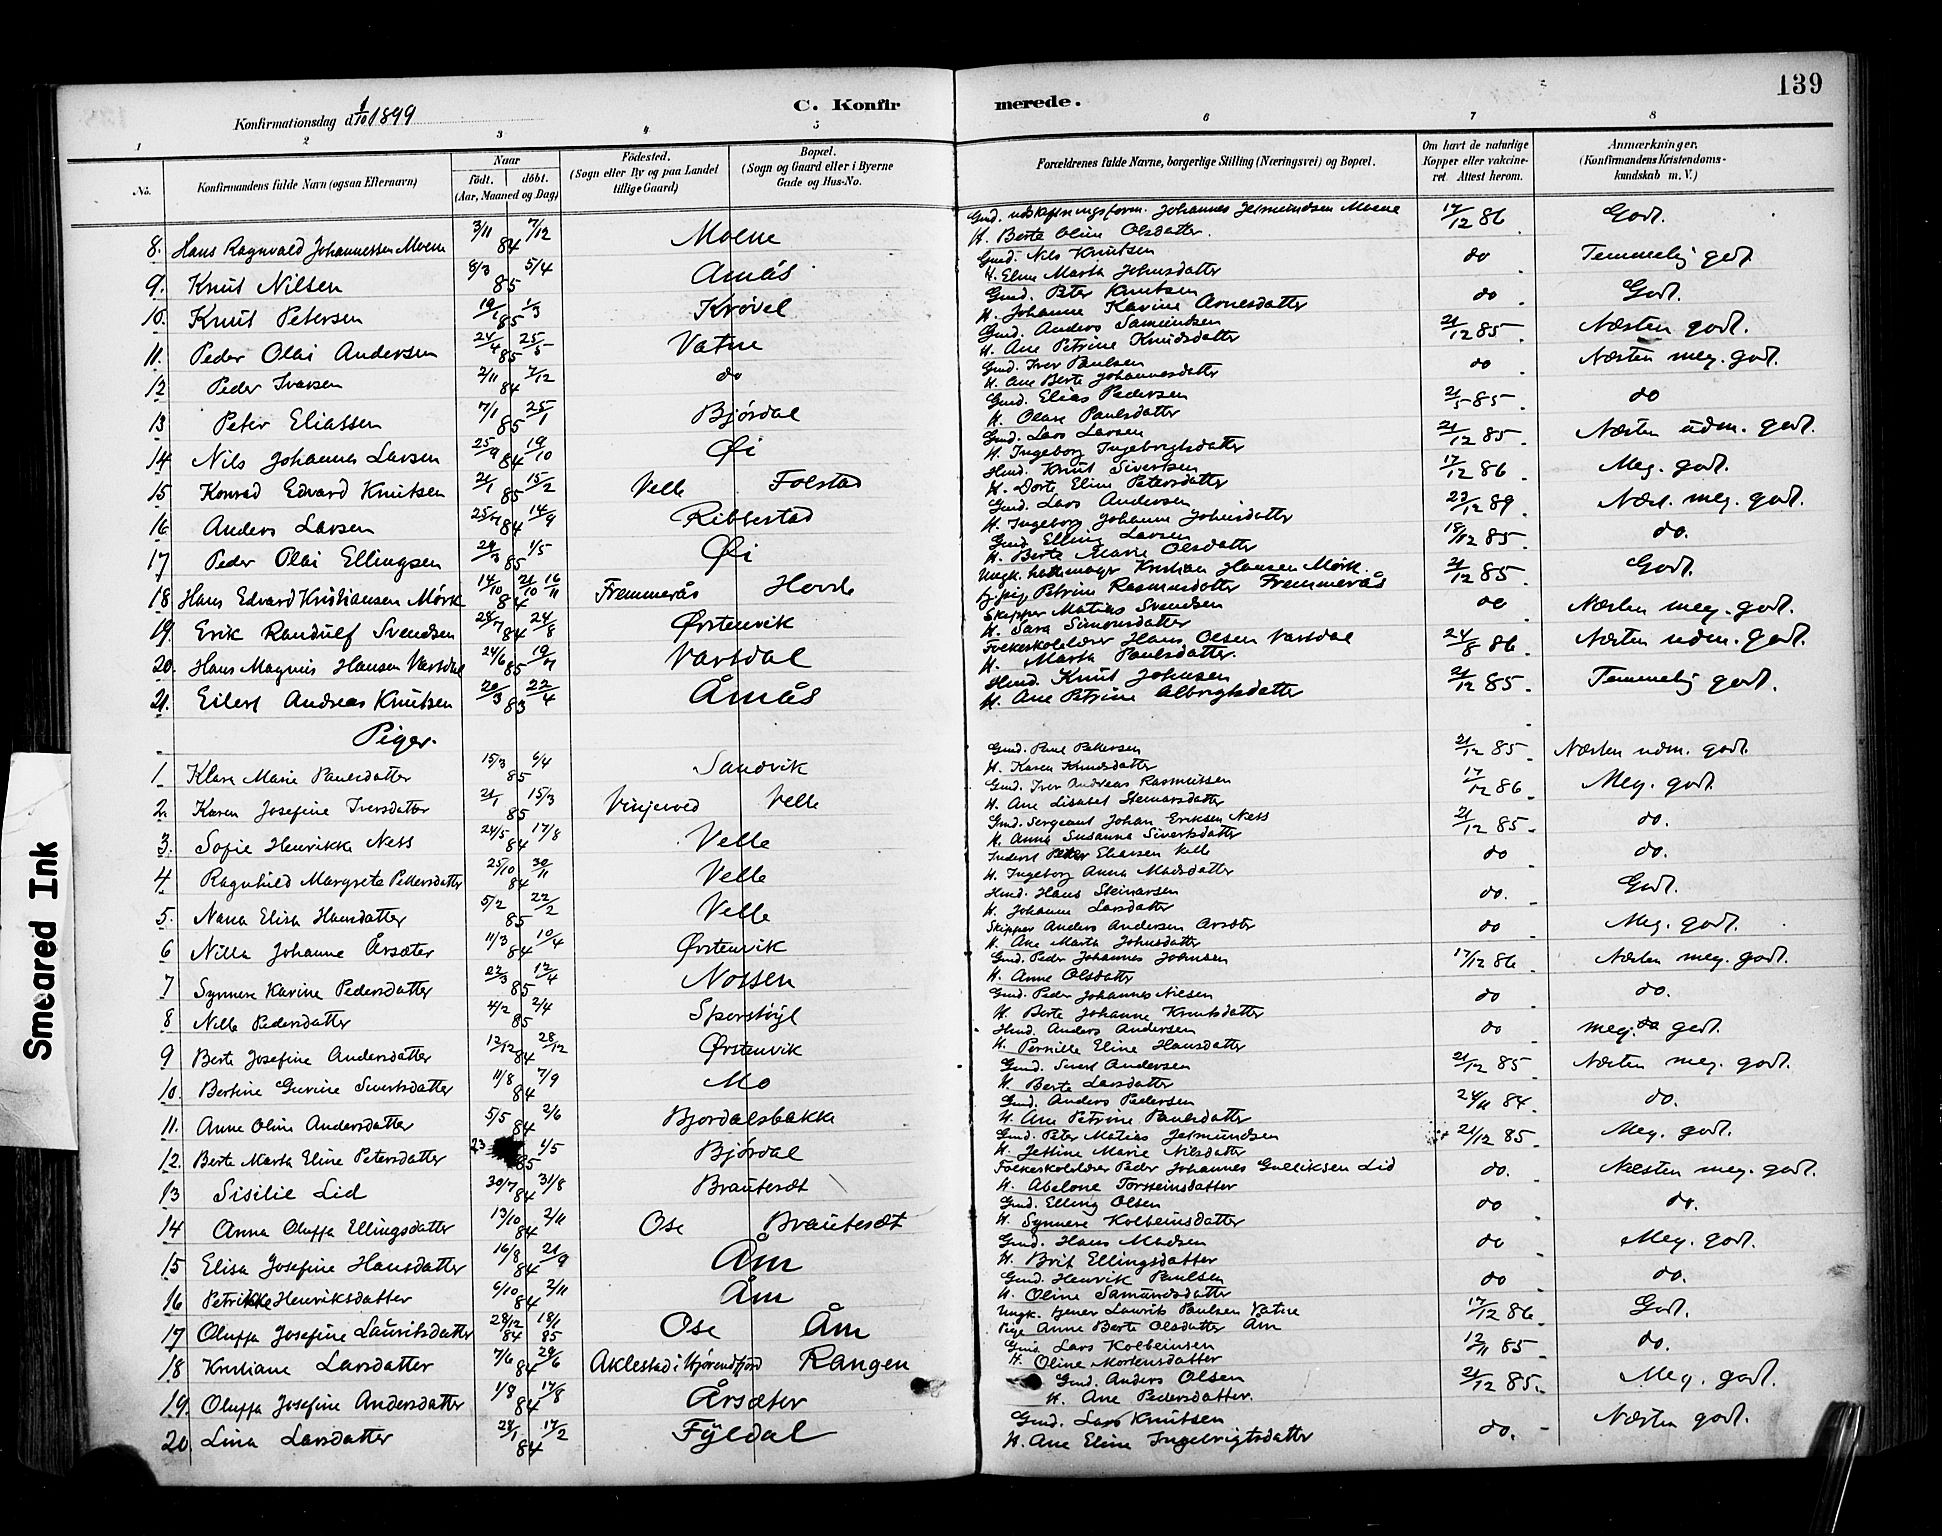 139
C. Konfirmerede.
Konfirmationsdag d. 1/10 1899
1 2 3 4 5 6 7 8
No.
Konfirmandens fulde Navn (ogsaa Efternavn)
Naar
født. døbt.
(Aar, Maaned og Dag)
Fødested.
(Sogn eller By og paa Landet
tillige Gaard)
Bopæl.
(Sogn og Gaard eller i Byerne
Gade og Hus-No.
Forældrenes fulde Navne, borgerlige Stilling (Næringsvei) og Bopæl.
Om havt de naturlige
Kopper eller vakcine-
ret. Attest herom.
Anmærkninger.
(Konfirmandens Kristendoms-
kundskab m. V.)
8. Hans Ragnvald Johannessen Moene 3/11 84 7/12 Moene Gmd. Johannes Jetmundsen Moene 17/12 86 Godt.
H. Berte Oline Olsdatter.
9. Knut Nilsen 8/3 85 5/4 Amås Gmd. Nils Knutsen do Temmelig godt
H. Eline Marta Johnsdatter
10. Knut Petersen 19/1 85 1/3 Krøvel Gmd. Peter Knutsen do Godt.
H. Johanne Karine Arnesdatter
11. Peder Olai Andersen 24/4 85 25/5 Vatne Gmd. Anders Samundsen 21/12 85 Næsten godt.
H. Ane Petrine Knudsdatter
12 Peder Iversen 2/11 84 7/12 do Gmd. Iver Paulsen do Næsten meg. godt.
H. Ane Berte Johannesdatter
13 Peter Eliassen 7/1 85 25/1 Bjørdal Gmd. Elias Pedersen 21/5 85 do
H. Olave Paulsdatter
14 Nils Johannes Larsen 25/9 84 19/10 Øi Gmd. Lars Larsen 21/12 85 Næsten udm. godt.
H. Ingeborg Ingebrigtsdatter
15 Konrad Edvard Knutsen 21/1 85 15/2 Velle Folstad Husd. Knut Sivertsen 17/12 86 Meg. godt.
H. Dorte Eline Petersdatter
16 Anders Larsen 25/7 84 14/9 Ribbestad Gmd. Lars Andersen 23/12 89 Næst. meg. godt.
H. Ingeborg Johanne Johnsdatter
17 Peder Olai Ellingsen 29/3 85 1/5 Øi Gmd Elling Larsen 18/12 85 do.
H. Berte Marie Olsdatter
18 Hans Edvard Kristiansen Mørk 14/10 84 16/11 Fremmerås Hovde Ungk. Kristian Hansen Mørk 21/12 85 Godt.
Petrine Rasmusdatter Fremmerås
19. Erik Randulf Svendsen 28/7 84 24/8 Ørstenvik Skipper Matias Svendsen do Næsten meg. godt.
H. Sara Simonsdatter
20. Hans Magnus Hansen Vartdal 24/6 85 19/7 Vartdal Folkeskolelærer Hans Olsen Vartdal 24/8 86 Næsten udm. godt.
H. Marta Paulsdatter.
21. Eilert Andreas Knutsen 20/3 83 22/4 Åmås Husd. Knut Johnsen 21/12 85 Temmelig godt.
H. Ane Petrine Albrigtsdatter
Piger.
1. Klara Marie Paulsdatter 15/3 85 6/4 Sandvik Gmd. Paul Pettersen 21/12 85 Næsten udm. godt.
H. Karen Knudsdatter
2. Karen Josefine Iversdatter 21/1 85 15/3 Velle Gmd. Iver Andreas Rasmussen 17/12 86 Meg. godt.
H. Ane Lisabet Steinarsdatter
3. Sofie Henrikke Nets 24/5 84 17/8 Velle Gmd. Sergeant Johan Eriksen Nets 21/12 85 do.
H. Anna Susanna Sivertsdatter
4 Ragnhild Margrete Pettersdatter 25/10 84 30/11 Velle Inderst Petter Eliassen Velle do do.
H. Ingeborg Anna Madsdatter
5. Nana Elisa Hansdatter 5/2 85 22/2 Velle Husd. Hans Steinarsen do. Godt.
H. Johanne Larsdatter
6 Nilla Johanne Årsæter 11/3 84 10/4 Ørstenvik Skipper Anders Andersen Arsæter do Meg. godt.
H. Ane Marta Johnsdatter
7 Synnøve Karine Pedersdatter 22/3 85 12/4 Nossen Gmd. Peder Johannes Johnsen 17/12 86 Næsten meg. godt.
H. Anne Olsdatter
8 Nille Pedersdatter 4/2 85 2/4 Sporstøyl Gmd. Peder Johannes Nilsen do do.
H. Berte Johanne Knutsdatter
9 Berte Josefine Andersdatter 12/12 84 28/12 Ørstenvik Husd. Anders Andersen do meg. godt.
H. Pernille Eline Hansdatter
10. Bertine Gurine Sivertsdatter 11/8 84 7/9 Mo Gmd. Sivert Andersen 21/12 85 Næsten meg. godt.
H. Berte Larsdatter
11. Anne Oline Andersdatter 5/5 84 2/6 Bjørdalsbakke Gmd. Anders Pedersen 24/11 84 do.
H. Ane Petrine Paulsdatter
12. Berte Marta Eline Petersdatter 23 85 1/5 Bjørdal Gmd. Peter Matias Jetmundsen 21/12 85 Meg. godt.
H. Jettine Marie Nilsdatter
13 Sisilie Lid 30/7 84 31/8 Brautesæt Folkeskolelærer Peder Johannes Gulliksen Lid do. Næsten meg. godt.
H. Abelone Torsteinsdatter
14 Anna Oluffa Ellingsdatter 13/10 84 2/11 Ose Brautesæt Gmd. Elling Olsen do do.
H. Synnøve Kolbeinsdatter
15 Elisa Josefine Hansdatter 16/8 84 21/9 Åm Gmd. Hans Madsen do Meg. godt.
H. Brit Ellingsdatter
16 Petrikke Henriksdatter 6/10 84 2/11 Åm Gmd. Henrik Paulsen do do.
H. Oline Samundsdatter
17 Oluffa Josefine Lauritsdatter 29/12 84 18/1 85 Ose Åm Ungk. tjener Laurits Paulsen Vatne 17/12 86 Godt.
Pige Anne Berte Olsdatter Åm
18 Kristiane Larsdatter 7/6 84 29/6 Aklestad i Hjørendfjord Rangen Gmd. Lars Kolbeinsen 12/11 85 do.
H. Oline Mortensdatter
19. Oluffa Josefine Andersdatter 1/8 84 17/8 Årsæter Gmd. Anders Olsen 21/12 85 Meg. godt.
H. Ane Pedersdatter.
20. Lina Larsdatter 28/1 84 17/2 Fyldal Gmd. Lars Knutsen do. Næsten godt.
H. Ane Eline Ingebrigtsdatter
Smeared Ink